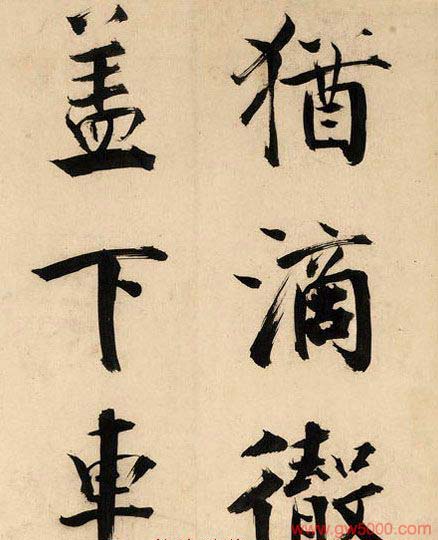 猶滴
盖下車
www.gw5000.com